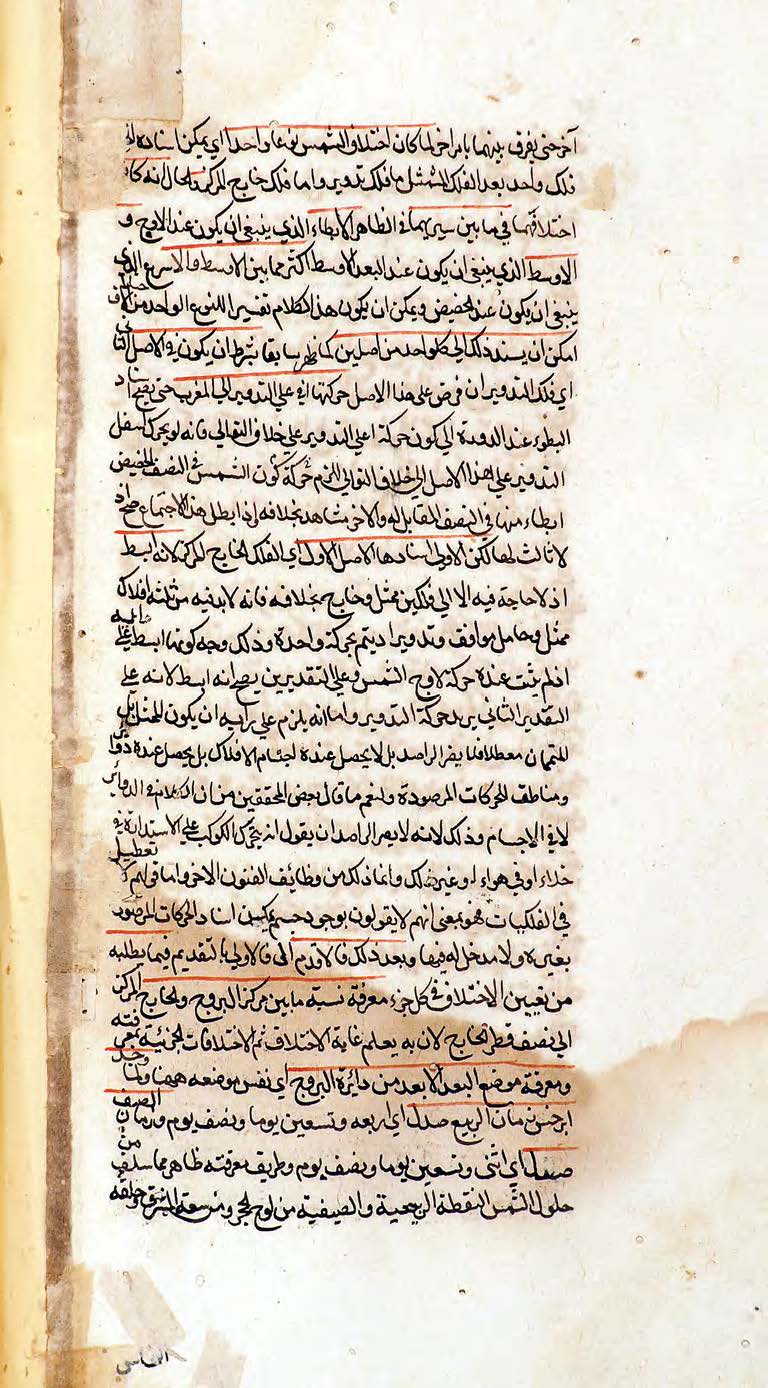 آخر حتى نفرق بينهما بامر اخر لما كان اختلاف الشمس نوعا واحدا اى يمكن اسناده الى
فلك واحد بعد الفلك الممثل اما فلك تدوير واما فلك خارج المركز والحال انه كان
اختلافهما فى ما بين سيريهما فى الظاهر الابطاء الذي ينبغي ان يكون عند الاوج و
الاوسط الذي ينبغي ان يكون عند البعد الاوسط اكثر مما بين الاوسط والاسرع الذي
ينبغي ان يكون عند الحضيض ويمكن ان يكون هذا الكلام تفسيرا للنوع الواحد من الاختلاف
امكن ان يسند ذلك الى كل واحد من اصلين كما ظهر سابقا بشرط ان يكون فى الاصل الثاني
اي فلك التدوير ان فرض على هذا الاصل حركتها في اعلي التدوير الي المغرب حتى يصح اسناد
البطوء عند الذروة الي كون حركة اعلي التدوير علي خلاف التوالي فانه لو يحرك اسفل
التدوير علي هذا الاصل الي خلاف التوالي لزم كون الشمس فى النصف الحضيض
ابطاء منها في النصف المقابل له والاخر مشاهد بخلافه واذا بطل هذا الاجتماع صح اذ
لا ثالث لهما لكن الاولى اسنادها الاصل الاول اي الفلك الخارج المركز لانه ابسط
اذ لا حاجة فيه الا الي فلكين ممثل وخارج بخلافه فانه لا بد فيه من ثلثة افلاك
ممثل وحامل موافق وتدوير اذ يتم بحركة واحدة وذلك وجه كونها ابسط علي رايه
اذ لم يثبت عنده حركة لاوج الشمس وعلي التقديرين يصح انه ابسط لانه علي
التقدير الثاني يزيد حركة التدوير واما انه يلزم علي رايه ان يكون للممثل بل
المتممان معطلا فلا يضر الراصد بل لا يحصل عنده اجسام الافلاك بل يحصل عنده دوائر
ومناطق للحركات المرصودة ولنعم ما قال بعض المحققين من ان الكلام فى الدوائر
لا في الاجسام وذلك لانه لا يضر الراصد ان يقول انه يتحرك الكوكب علي الاستدارة في
خلاء او في هواء او غير ذلك وانما ذلك من وظائف الفنون الاخر واما قولهم لا تعطيل
في الفلكيات فهو بمعنى انهم لا يقولون بوجود جسم يمكن اسناد الحركات المرصودة
بغيره ولا مدخل له فيها وبعد ذلك فالاقدم اى فالاولي بالتقديم فيما يطلبه
من تعيين الاختلاف فى كل جزء معرفة نسبة ما بين مركز البروج والخارج المركز
الي نصف قطر الخارج لان به يعلم غاية الاختلاف ثم الاختلافات الجزئية
ومعرفة موضع البعد الابعد من دائرة البروج اي نفس موضعه ههنا ولما وجد
ابرخس زمان الربيع صدل اي اربعه وتسعين يوما ونصف يوم وزمان الصيف
صبل اي اثنى وتسعين يوما ونصف يوم وطريق معرفته ظاهر مما سلف من
حلول الشمس النقطة الربيعية والصيفية من لوح الحجر ومن سعة المشرق وحلقه